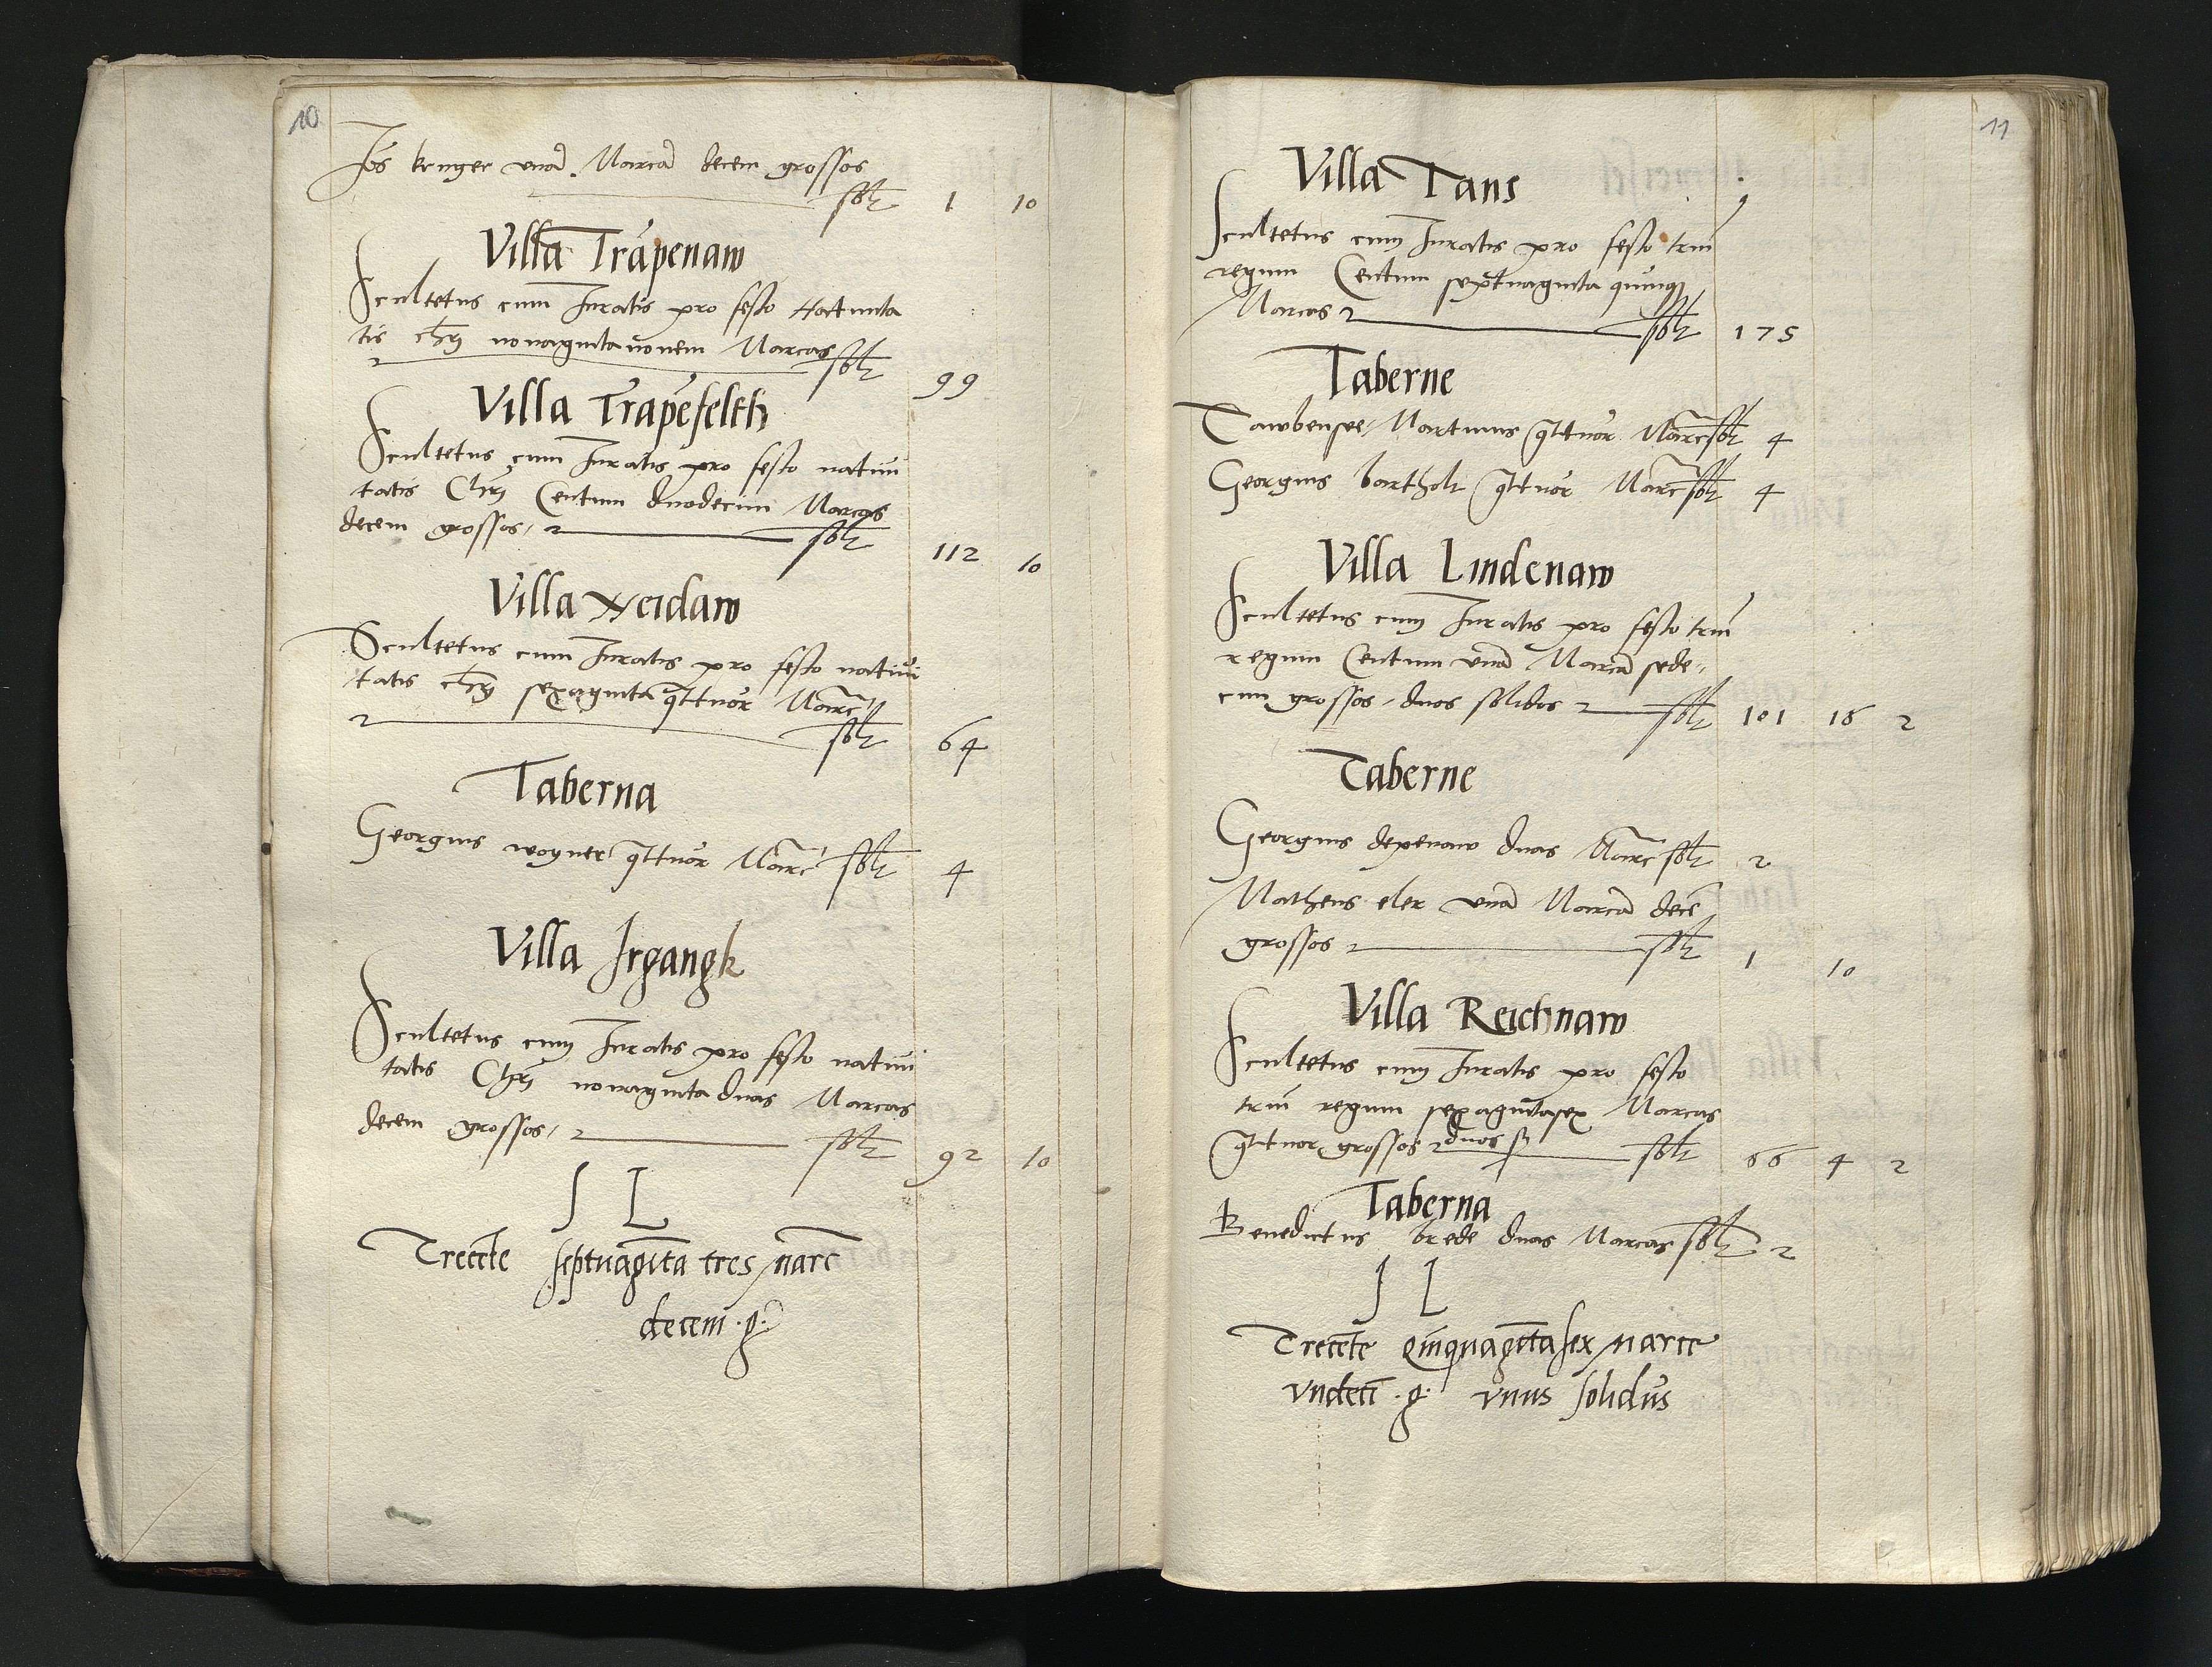 10
Jos kruger vnā Marcā decem grossos
solt 1 10
Villa Trapenaw
Scultetus cum Juratis pro festo Natiuita
tis chrī nonaginta nouem Marcas solt 99
Villa Trapefelth
Scultetus cum Juratis pro festo natiui
tatis Chrī Centum duodecim Marcas
decem grossos, solt 112 10
Villa Weidaw
Scultetus cum Juratis pro festo natiui
tatis chrī sexaginta q̄ttuor Marc
solt 64
Taberna
Georgius woyner q̄ttuor Marc solt 4
Villa Irgangk
Scultetus cum Juratis pro festo natiui
tatis Chrī nonaginta duas Marcas
decem grossos, solt 92 10
S L
Trecēte septuagīta tres marc
decem .g.
11
Villa Tans
Scultetus cum Juratis pro festo triū
regum Centum septuaginta quinq
Marcas solt 175
Taberne
Tawbensee Martinus q̄ttuor Marc solt 4
Georgius bartholt q̄ttuor Marc solt 4
Villa Lindenaw
Scultetus cum Juratis pro festo triū
regum Centum vnā Marcā sede,,
cim grossos, duos solidos solt 101 16 2
Taberne
Georgius depenaw duas Marc solt 2
Matheus eler vnā Marcā decē
grossos solt 1 10
Villa Reichnaw
Scultetus cum Juratis pro festo
triū regum sexagintasex Marcas
q̄ttuor grossos duos ß solt 66 4 2
Taberna
Benedictus brede duas Marcas solt 2
S L
Trecēte qīnquagīta sex marce
vndecī .g. vnus solidus